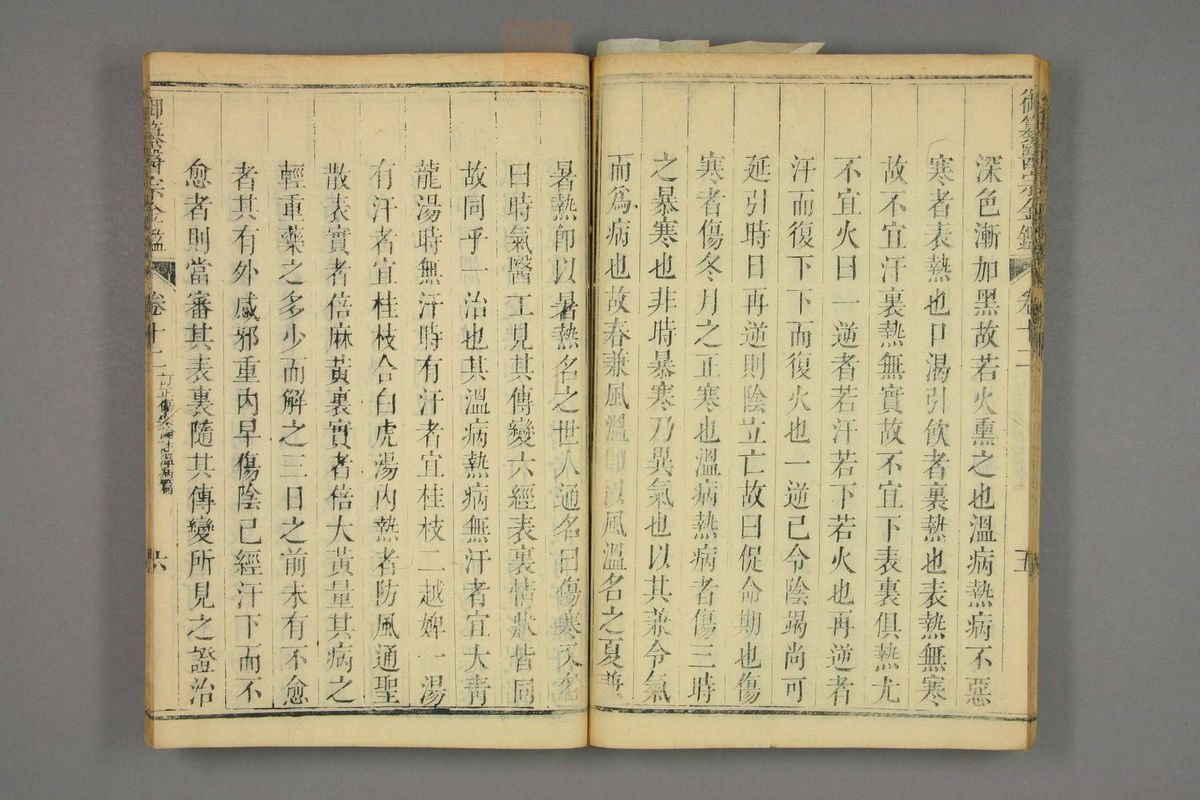 御纂醫宗金鑑 卷十二 五
深色漸加黑故若火熏之也溫病熱病不惡
寒者表熱也口渴引飲者裏熱也表熱無寒
故不宜汗裏熱無實故不宜下表裏俱熱尤
不宜火曰一逆者若汗若下若火也再逆者
汗而復下下而復火也一逆已令陰竭尚可
延引時日再逆則陰立亡故曰促命期也傷
寒者傷冬月之正寒也溫病熱病者傷三時
之暴寒也非時暴寒乃異氣也以其兼令氣
而爲病也故春兼風溫卽以風溫名之夏兼
暑熱卽以暑熱名之世人通名曰傷寒又名
曰時氣醫工見其傳變六經表裏情狀皆同
故同乎一治也其溫病熱病無汗者宜大靑
龍湯時無汗時有汗者宜桂枝二越婢一湯
有汗者宜桂枝合白虎湯內熱者防風通聖
散表實者倍麻黃裏實者倍大黃量其病之
輕重藥之多少而解之三日之前未有不愈
者其有外感邪重內早傷陰已經汗下而不
愈者則當審其表裏隨其傳變所見之證治
御纂醫宗金鑑 卷十二 六